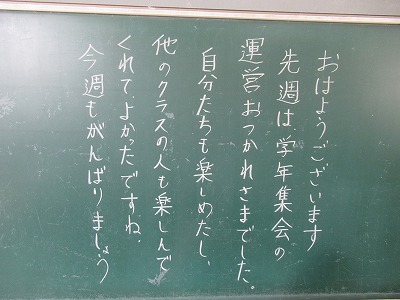 おはようございます
先週は、学年集会の
運営おつかれさまでした。
自分たちも楽しめたし、
他のクラスの人も楽しんで
くれてよかったですね。
今週もがんばりましょう